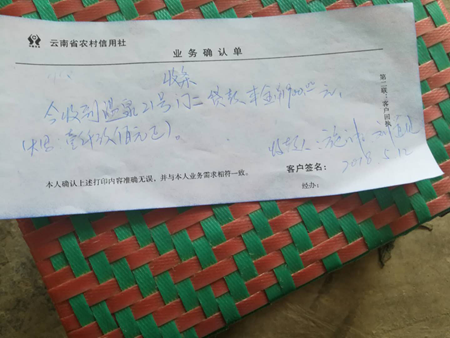 云南省农村信用社
业务确认单
收条
今收到温泉21号门二贷款本金1900.00元,
(大写:壹仟玖佰元正)。
收款人:
客户签名:
2018.5.12
本人确认上述打印内容准确无误,并与本人业务需求相符一致。
经办:
第二联:客户回执